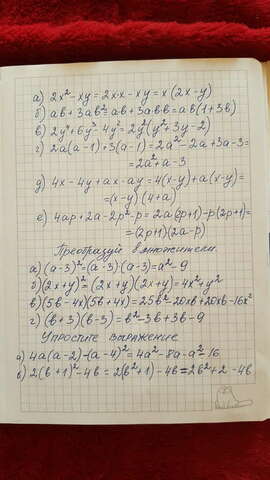 а) 2x² - xy = 2x·x - xy = x(2x - y)
б) ab + 3ab² = ab + 3abb = ab(1 + 3b)
в) 2y⁴ + 6y³ - 4y² = 2y²(y² + 3y - 2)
г) 2a(a - 1) + 3(a - 1) = 2a² - 2a + 3a - 3 =
= 2a² + a - 3
д) 4x - 4y + ax - ay = 4(x - y) + a(x - y) =
= (x - y)(4 + a)
е) 4ap + 2a - 2p² - p = 2a(2p + 1) - p(2p + 1) =
= (2p + 1)(2a - p)
Преобразуй в множители.
а) (a - 3)² = (a - 3)·(a - 3) = a² - 9
б) (2x + y)² = (2x + y)(2x + y) = 4x² + y²
в) (5b - 4x)(5b + 4x) = 25b² - 20xb + 20xb - 16x²
г) (b + 3)(b - 3) = b² - 3b + 3b - 9
Упростите выражение
а) 4a(a - 2) - (a - 4)² = 4a² - 8a - a² - 16
в) 2(b + 1)² - 4b = 2(b² + 1) - 4b = 2b² + 2 - 4b